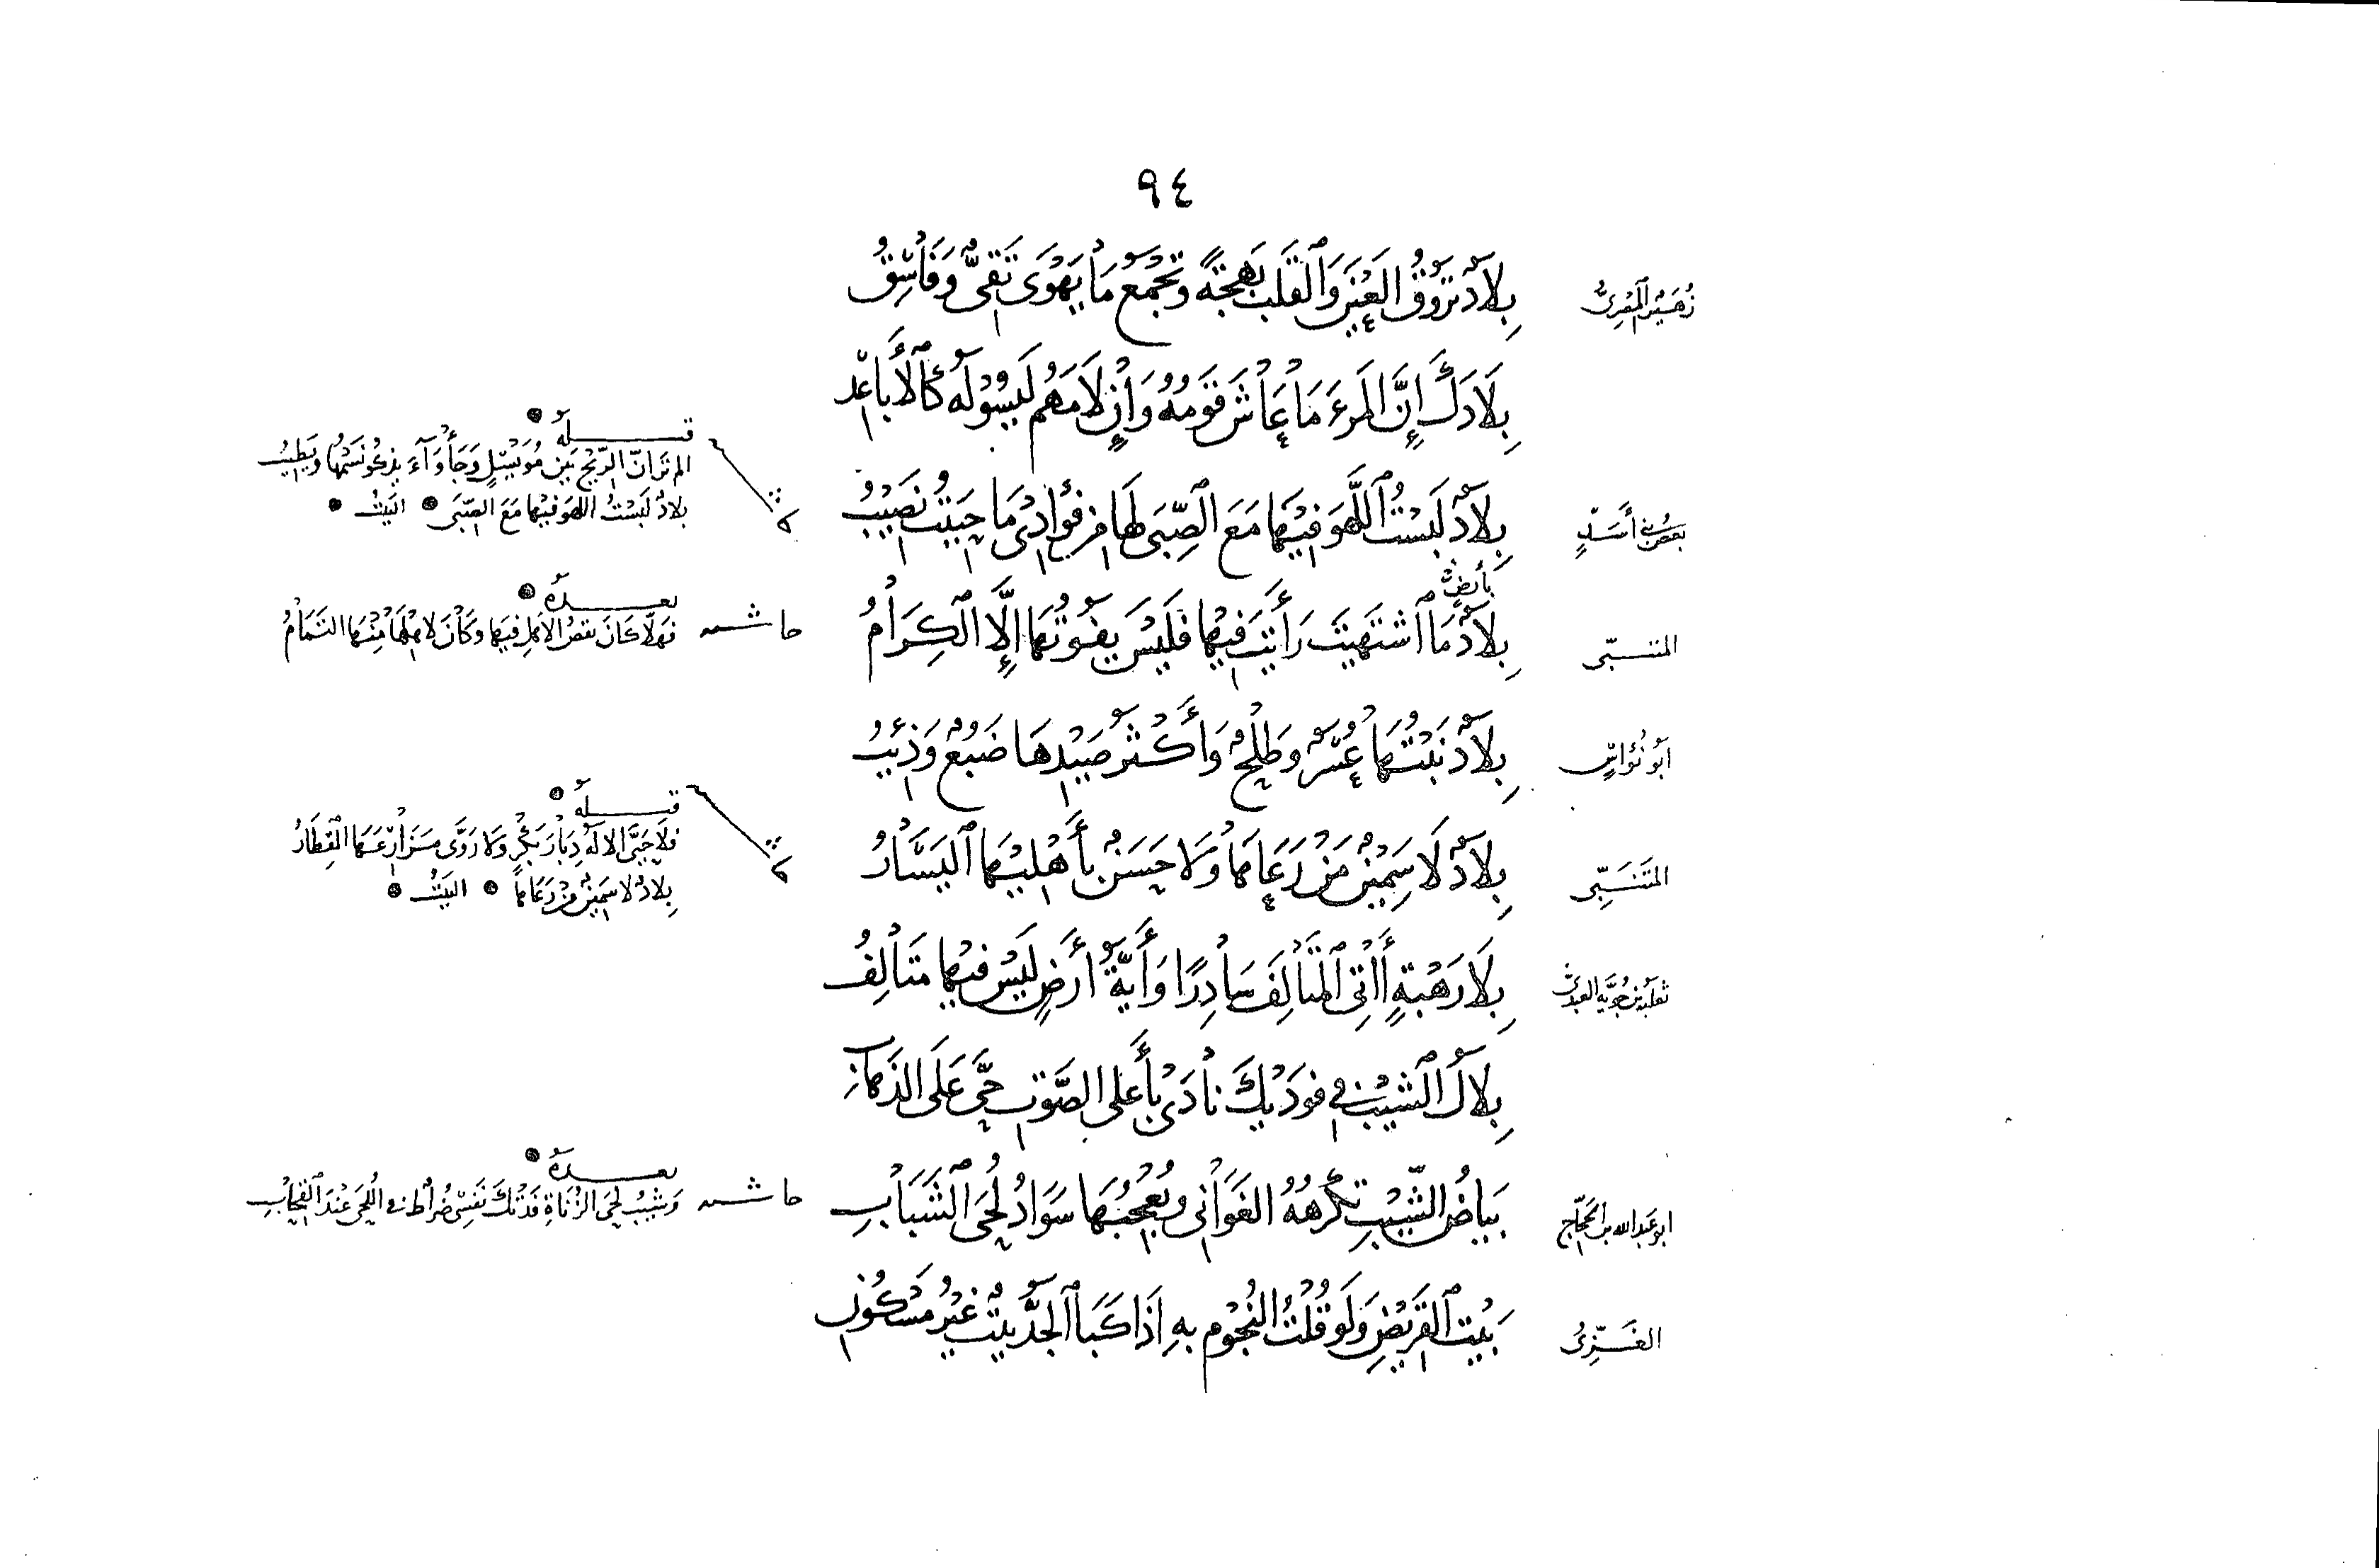 ٩٤
زُهَيْرُ الْمِصْرِىُّ
بِلَادٌ تَرُوقُ الْعَيْنَ وَالْقَلْبَ بَهْجَةً وَتَجْمَعُ مَا يَهْوَى تَقِىٌّ وَفَاسِقُ
بِلَادَكَ إِنَّ الْمَرْءَ مَا عَاشَ قَوْمُهُ وَإِنْ لَامَهُمْ لَيْسُوا لَهُ كَالْأَبَاعِدِ
بعضُ بنى أَسَدٍ
بِلَادٌ لَبِسْتُ اللَّهْوَ فِيهَا مَعَ الصِّبَى لَهَا مِنْ فُؤَادِى مَا حَيِيتُ نَصِيبُ
قبله
الم تر انّ الرِّيحَ بَيْنَ مُوَيْسِلٍ وَجَأْوَآءَ يَذْكُو نَسْمُهَا وَيَطِيبُ
بلادٌ لَبِسْتُ اللهْوَ فيهَا مَعَ الصِّبَى البَيْتُ
بأرضٍ
المتنبّى
بِلَادٌ مَا اشْتَهَيْتَ رَأَيْتَ فِيهَا فَلَيْسَ يَفُوتُهَا إِلَّا الْكِرَامُ
حاشية بعده
فهلّا كانَ نقصُ الاهلِ فيها وَكَانَ لاهْلِهَا مِنْهَا التَّمَامُ
أبُو نُوَاسٍ
بِلَادٌ نَبْتُهَا عُشَرٌ وَطَلْحٌ وَأَكْثَرُ صَيْدِهَا ضَبُعٌ وَذِيبُ
المُتَنَبِّى
بِلَادٌ لَا سَمِينٌ مَنْ رَعَاهَا وَلَا حَسَنٌ بِأَهْلِيهَا الْيَسَارُ
قبله
فلا حَيَّى الالهُ دِيَارَ بَكْرٍ وَلَا رَوَّى مَزَارِعَهَا القِطَارُ
بِلادٌ لا سَمِينٌ مَنْ رَعَاهَا البَيْتُ
العبدىّ
بِلَا رَهْبَةٍ أَاتِى الْمَتَالِفَ سَادِرًا وَأَيَّةُ أَرْضٍ لَيْسَ فِيهَا مَتَالِفُ
بِلَالُ الشَّيْبِ فِى فَوْدَيْكَ نَادَى بِأَعْلَى الصَّوْتِ حَىَّ عَلَى الذَّهَابِ
ابو عَبْدِ الله بن الحجّاج
بَيَاضُ الشَّيْبِ تَكْرَهُهُ الْغَوَانِى وَيُعْجِبُهَا سَوَادُ لُحَى الشَّبَابِ
حاشية بعده
وَشَيْبُ لِحَى الزُّنَاةِ فَدَتْكَ نَفْسِى ضُرَاطٌ فى اللِّحَى عِنْدَ القِحَابِ
الغَزِّىُ
بَيْتُ الْقَرِيضِ وَلَوْ قُلْتُ النُّجُومُ بِهِ إِذَا كَبَا الْجَدُّ بَيْتٌ غَيْرُ مَسْكُونِ